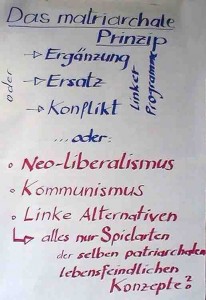 Das matriarchale
Prinzip
oder
-> Ergänzung
-> Ersatz
-> Konflikt
Linker
Programme
...oder:
° Neo-liberalismus
° Kommunismus
° Linke Alternativen
↳ alles nur Spielarten
der selben patriarchalen
lebensfeindlichen
Konzepte?